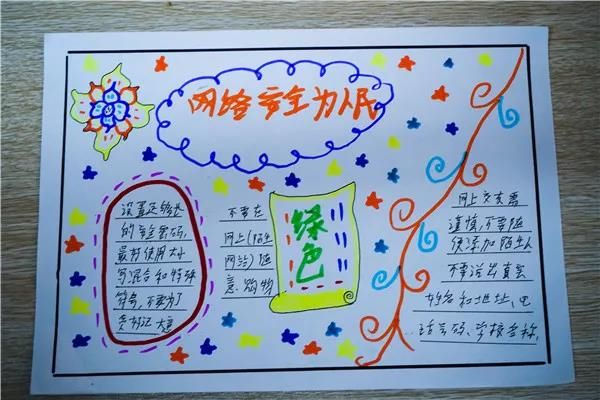 网络安全为人民
设置足够长
的安全密码,
最好使用大小
写混合和特殊
符号,不要为了
贪好记
不要在
网上(陌生
网站)随
意购物
绿色
网上交友需
谨慎,不要随
便添加陌生人
不要说出真实
姓名和地址、电
话号码、学校名称,